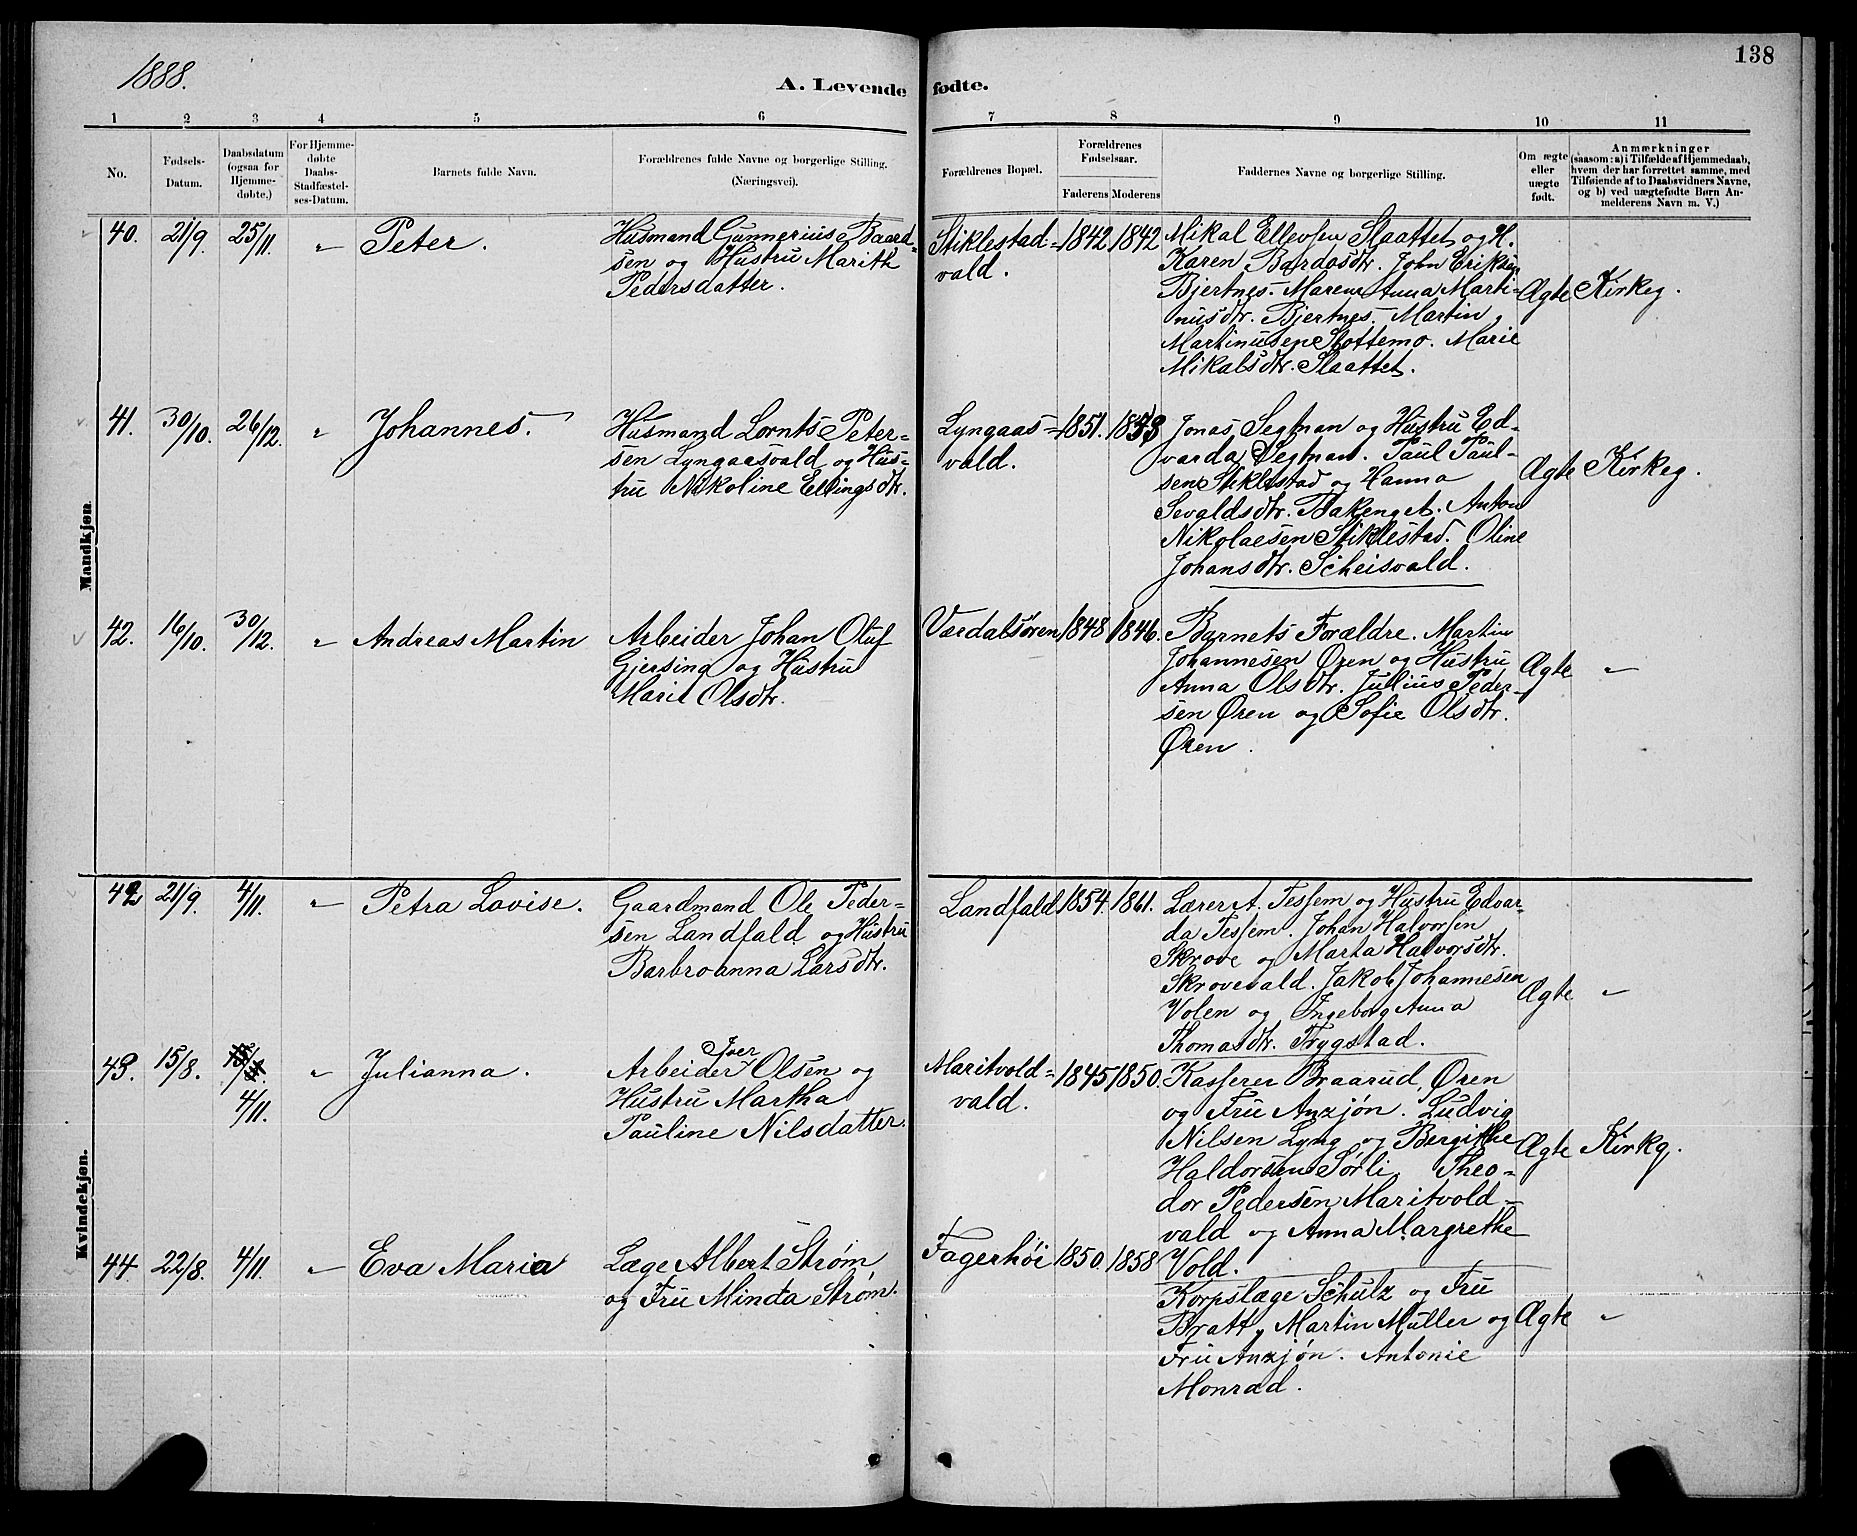 1888.
A. Levende
fødte.
138
1 2 3 4 5 6 7 8 9 10 11
No.
Fødsels-
Datum.
Daabsdatum
(ogsaa for
Hjemme-
døbte.)
For Hjemme-
døbte
Daabs-
Stadfæstel-
ses-Datum.
Barnets fulde Navn.
Forældrenes fulde Navne og borgerlige Stilling.
(Næringsvei).
Forældrenes Bopæl.
Forældrenes
Fødselsaar.
Faderens Moderens
Faddernes Navne og borgerlige Stilling.
Om ægte
eller
uægte
født.
Anmærkninger
(saasom: a) i Tilfælde af Hjemmedaab,
hvem der har forrettet samme, med
Tilføiende af to Daabsvidners Navne,
og b) ved uægtefødte Børn An-
melderens Navn m. V.)
Mandkjøn.
40. 21/9 25/11 " Peter.
Husmand Gunnerius Baard-
sen og Hustru Marith
Pedersdatter.
Stiklestad=
vald.
1842 1842
Mikal Ellevsen Slaattet og H.
Karen Bardosdtr. John Eriksen
Bjertnes. Maren Anna Marti-
nusdtr. Bjertnes. Martin
Martinusen Slottemo. Marie
Mikalsdtr. Slaattet.
Ægte Kirkeg.
41. 30/10. 26/12. " Johannes.
Husmand Lornts Peter-
sen Lyngaasvald og Hus-
tru Nikoline Ellingsdtr.
Lyngaas=
vald.
1851. 1853
Jonas Segtnan og Hustru Ed-
varda Segtnan. Paul Paul-
sen Stiklestad og Hanna
Sevaldsdtr. Bakenget. Anton
Nikolaesen Stiklestad. Oline
Johansdtr. Scheisvald.
Ægte Kirkeg.
42. 16/10. 30/12. " Andreas Martin
Arbeider Johan Oluf
Gjersing og Hustru
Marie Olsdtr.
Værdalsøren 1848 1846.
Barnets Forældre. Martin
Johannesen Øren og Hustru
Anna Olsdtr. Julius Peder-
sen Øren og Sofie Olsdtr.
Øren.
Ægte "
Kvindekjøn.
42 21/9. 4/11. " Petra Lovise.
Gaardmand Ole Peder-
sen Landfald og Hustru
Barbroanna Larsdtr.
Landfald 1854. 1861.
Lærer A. Tessem og Hustru Edvar-
da Tessem. Johan Halvorsen
Skrove og Marta Halvorsdtr.
Skrovevald. Jakob Johannesen
Volen og Ingeborg Anna
Thomasdtr. Trygstad.
Ægte "
43. 15/8. 4/11. " Julianna.
Iver
Arbeider Olsen og
Hustru Martha
Pauline Nilsdatter.
Maritvold=
vald.
1845 1850.
Kasserer Braarud, Øren
og Fru Anzjøn. Ludvig
Nilsen Lyng og Bergithe
Haldorsen Sørli. Theo-
dor Pedersen Maritvold-
vald og Anna Margrethe
Vold.
Ægte Kirkg.
44. 22/8. 4/11. " Eva Maria
Læge Albert Strøm
og Fru Minda Strøm.
Fagerhøi 1850. 1858
Korpslæge Schulz og Fru
Bratt, Martin Müller og
Fru Anzjøn. Antonie
Monrad.
Ægte "